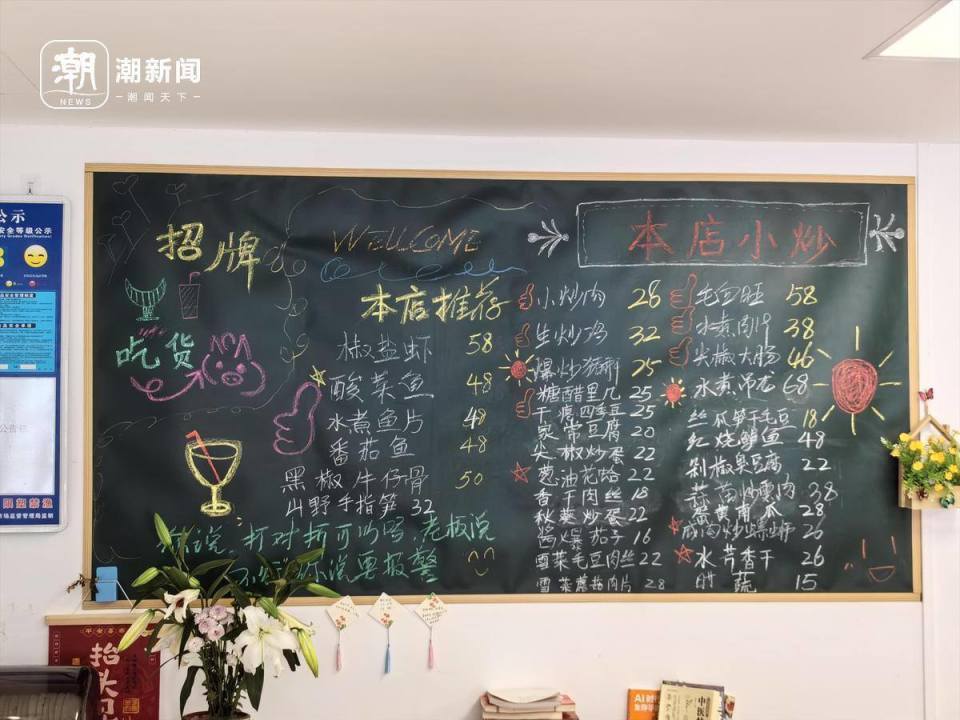 潮
NEWS
潮新闻
潮闻天下
公示
安全等级公示
招牌
WELLCOME
吃货
本店推荐
椒盐虾 58
酸菜鱼 48
水煮鱼片 48
番茄鱼 48
黑椒牛仔骨 50
山野手指笋 32
你说要报警
本店小炒
小炒肉 28
生炒鸡 32
爆炒猪肝 25
糖醋里几 25
干煸四季豆 25
家常豆腐 20
尖椒炒蛋 22
葱油花蛤 22
香干肉丝 18
秋葵炒蛋 22
茄子 16
雪菜毛豆肉丝 22
雪菜蘑菇肉片 28
毛血旺 58
水煮肉片 38
尖椒大肠 46
水煮吊龙 68
丝瓜笋干毛豆 18
红烧鳊鱼 48
剁椒臭豆腐 22
蒜苗炒熏肉 38
南瓜 28
咸肉炒螺蛳 26
水芹香干 26
时蔬 15
平安喜乐
抬头
AI时
中医